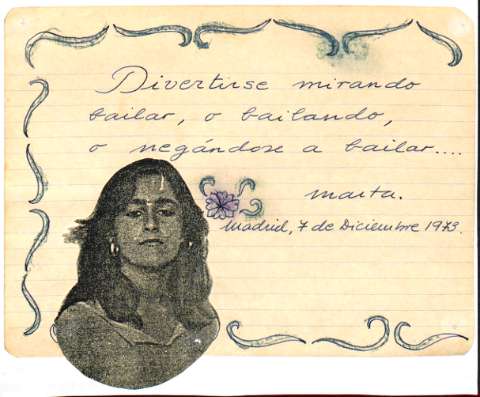 Divertirse mirando
bailar, o bailando,
o negándose a bailar....
Marta.
Madrid, 7 de Diciembre 1973.